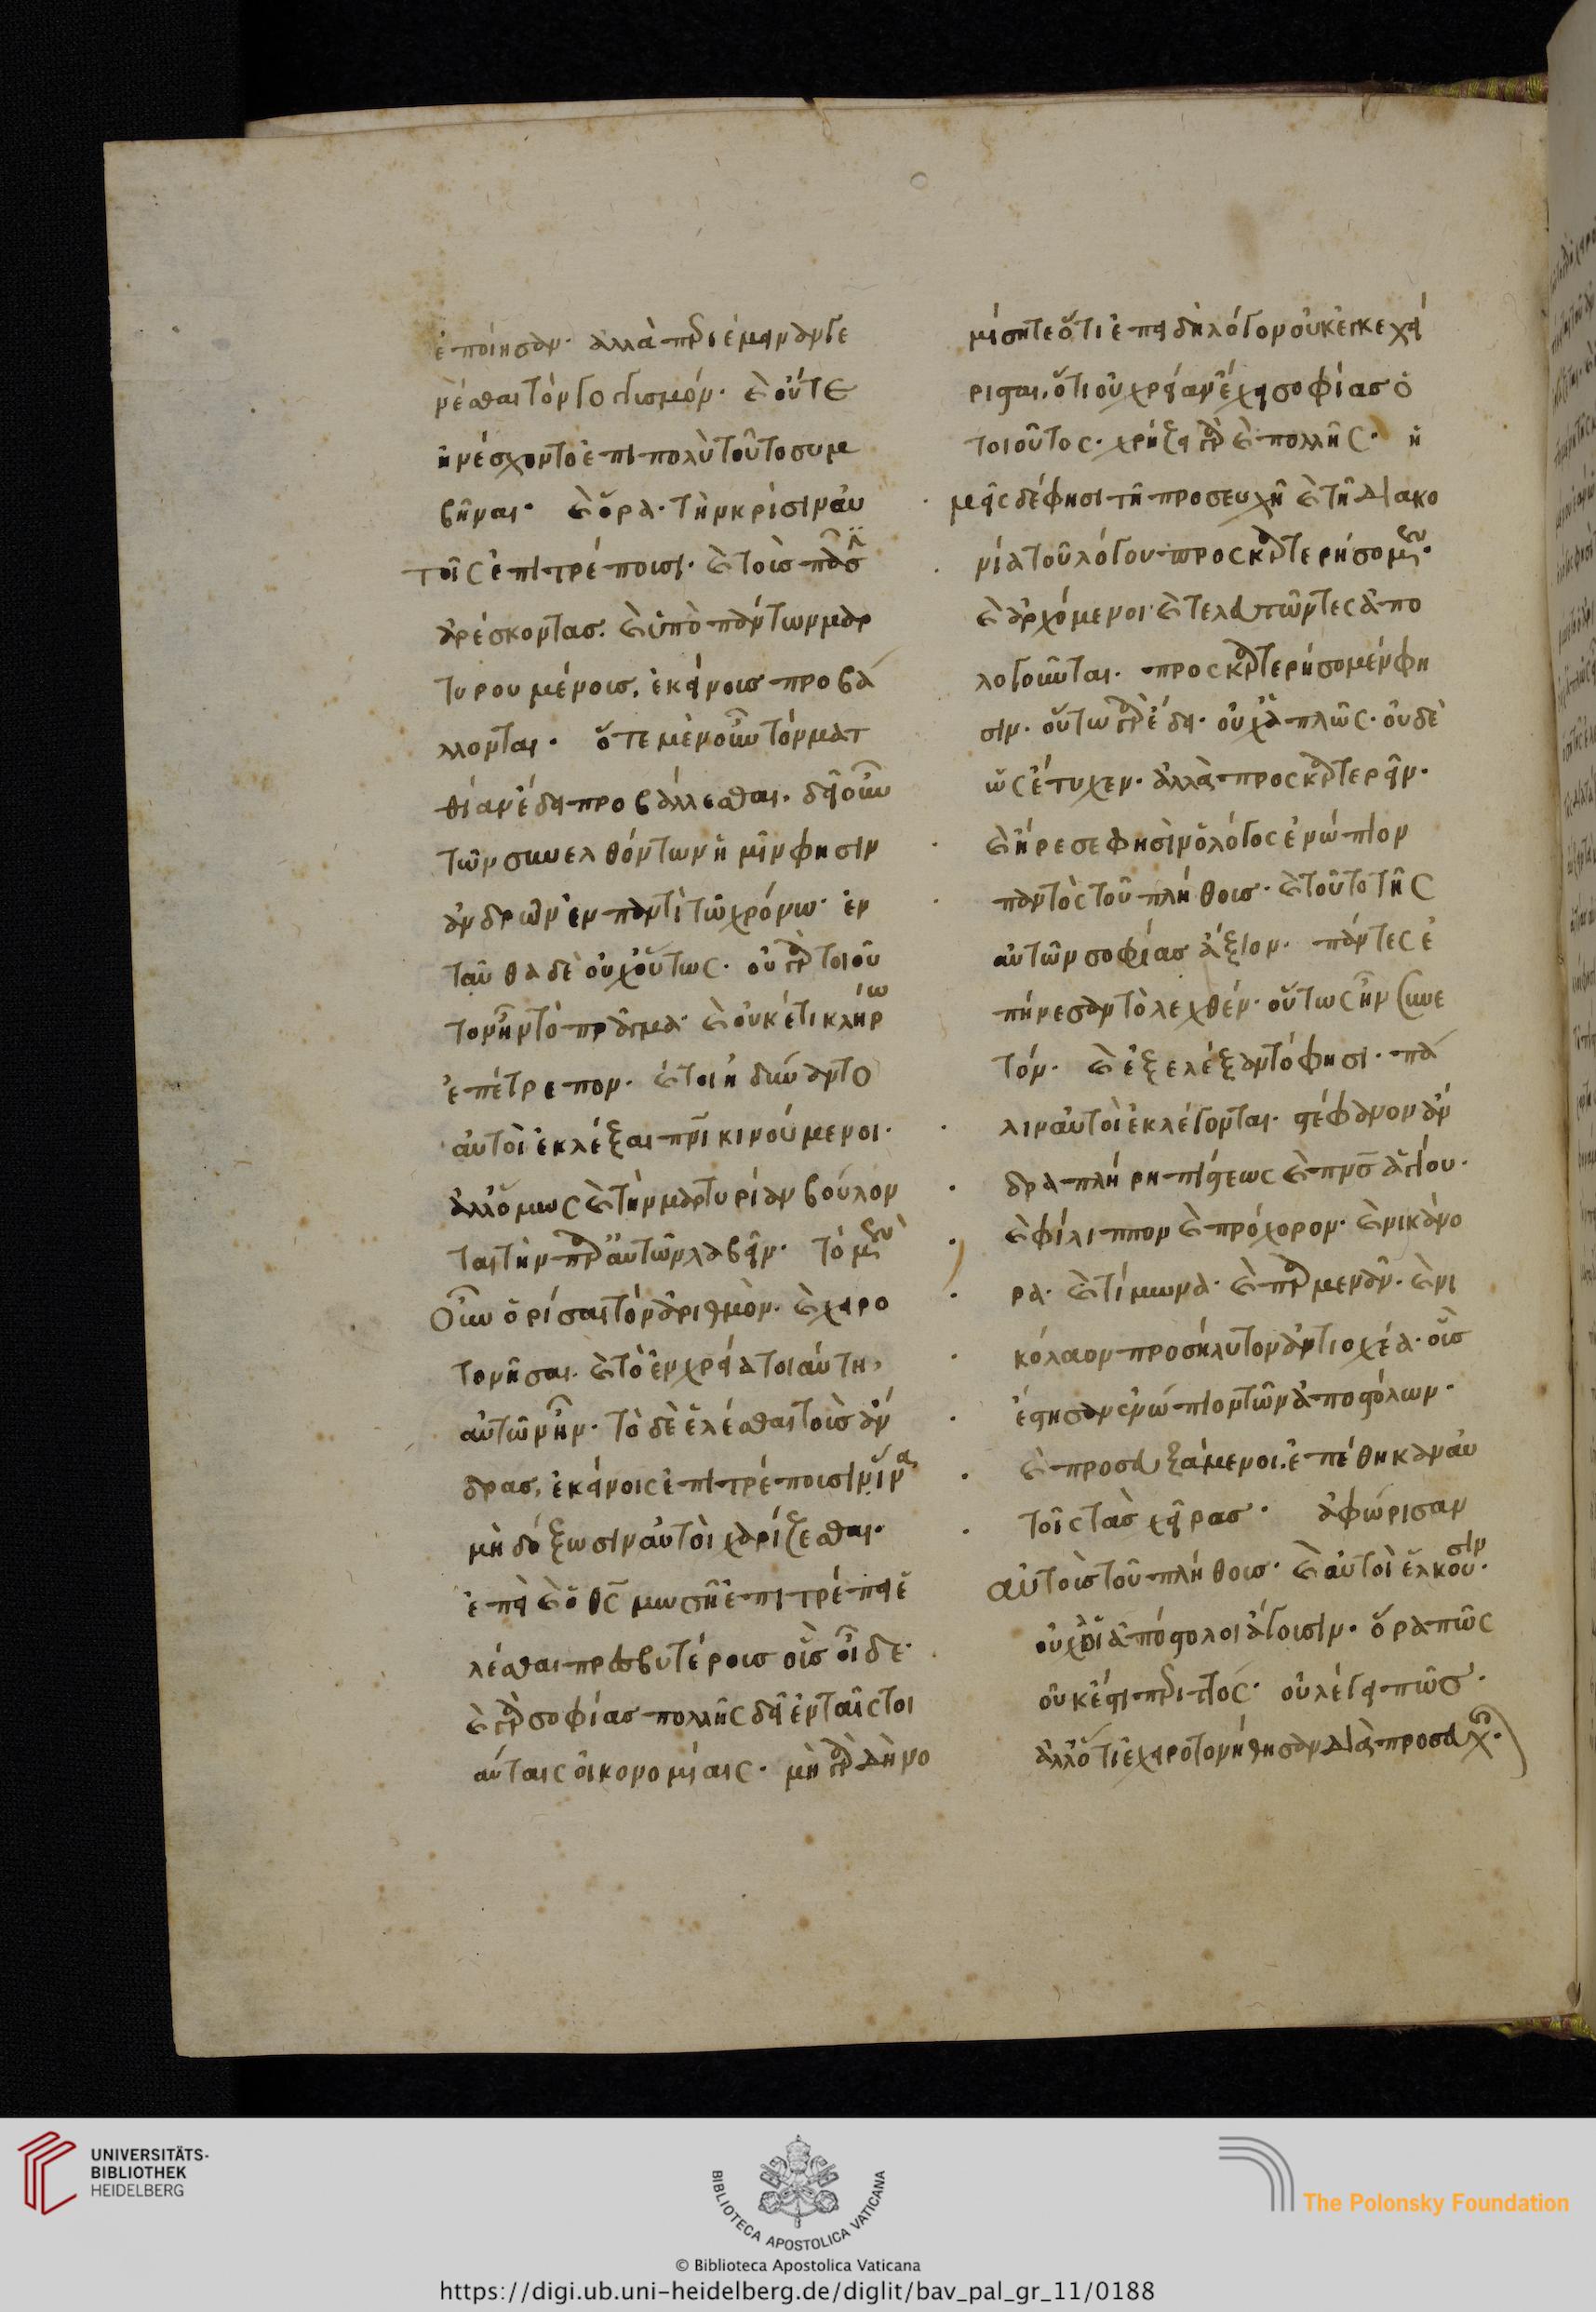 ἐποίησαν· ἀλλὰ πρὶ ἔμεναν γε
νέσθαι τὸν γογγυσμόν· καὶ οὔτε
ἠνέσχοντο ἐπιπολὺ τοῦτο συμ
βῆναι· καὶ ὅρα· τὴν κρίσιν αὐ
τοῖς ἐπιτρέπουσι· καὶ τοὺς πᾶσιν
ἀρέσκοντας. καὶ ὑπὸ πάντων μαρ
τυρουμένους, ἐκείνους προβά
λλονται· ὅτε μὲν οὖν τὸν ματ
θίαν ἔδει προβάλλεσθαι. δεῖ οὖν
τῶν συνελθόντων ἡμῖν φησιν
ἀνδρῶν ἐν παντὶ τῶ χρόνω· ἐν
ταῦθα δὲ οὐχ οὕτως· οὐ γὰρ τοιοῦ
τον ἦν τὸ πρᾶγμα· καὶ οὐκέτι κλήρω
ἐπέτρεπον· καί τοι ἠδύναντο
αὐτοὶ ἐκλέξαι πνι κινούμενοι·
ἀλλ' ὅμως καὶ τὴν μαρτυρίαν βούλον
ται τὴν παρ' αὐτῶν λαβεῖν· τὸ μὲν
οὖν ὁρίσαι τὸν ἀριθμὸν· καὶ χειρο
τονῆσαι· καὶ τὸ ἐν χρεία τοιαύτη,
αὐτῶν ἦν· τὸ δὲ ἑλέσθαι τοὺς ἄν
δρας, ἐκείνοις ἐπιτρέπουσιν ἵνα
μὴ δόξωσιν αὐτοὶ χαρίζεσθαι·
ἐπεὶ καὶ ὁ θς μωσῆ ἐπιτρέπει ἑ
λέσθαι πρεσβυτέρους οὓς οἶδε·
καὶ γὰρ σοφίας πολλῆς δεῖ ἐν ταῖς τοι
αύταις οἰκονομίαις· μὴ γὰρ δὴ νο
μίσητε ὅτι ἐπειδὴ λόγον οὐκ ἐγκεχεί
ρισται, ὅτι οὐ χρείαν ἔχει σοφίας ὁ
τοιοῦτος· χρήζει γὰρ καὶ πολλῆς· ἡ
μεῖς δέ φησι τῆ προσευχῆ καὶ τῆ διακο
νία τοῦ λόγου προσκαρτερήσομεν·
καὶ ἀρχόμενοι καὶ τελευτῶντες ἀπο
λογοῦνται· προσκαρτερήσομέν φη
σιν· οὕτω γὰρ ἔδει· οὐχ ἁπλῶς· οὐδὲ
ὡς ἔτυχεν· ἀλλὰ προσκαρτερεῖν·
καὶ ἤρεσε φησὶν ὁ λόγος ἐνώπιον
παντὸς τοῦ πλήθους· καὶ τοῦτο τῆς
αὐτῶν σοφίας ἄξιον· πάντες ἐ
πήνεσαν τὸ λεχθέν· οὕτως ἦν συνε
τόν· καὶ ἐξελέξαντό φησι· πά
λιν αὐτοὶ ἐκλέγονται· στέφανον ἄν
δρα πλήρη πίστεως καὶ πνς ἁγίου·
καὶ φίλιππον καὶ πρόχορον· καὶ νικάνο
ρα· καὶ τίμωνα· καὶ παρμενᾶν· καὶ νι
κόλαον προσήλυτον ἀντιοχέα· οὓς
ἔστησαν ἐνώπιον τῶν ἀποστόλων·
καὶ προσευξάμενοι, ἐπέθηκαν αὐ
τοῖς τὰς χεῖρας· ἀφώρισαν
αὐτοὺς τοῦ πλήθους· καὶ αὐτοὶ ἕλκουσιν·
οὐχ οἱ ἀπόστολοι ἄγουσιν· ὅρα πῶς
οὐκ ἔστι περιττὸς· οὐ λέγει πῶς·
ἀλλ' ὅτι ἐχειροτονήθησαν διὰ προσευχῆς·
UNIVERSITÄTS-
BIBLIOTHEK
HEIDELBERG
BIBLIOTECA APOSTOLICA VATICANA
The Polonsky Foundation
© Biblioteca Apostolica Vaticana
https://digi.ub.uni-heidelberg.de/diglit/bav_pal_gr_11/0188